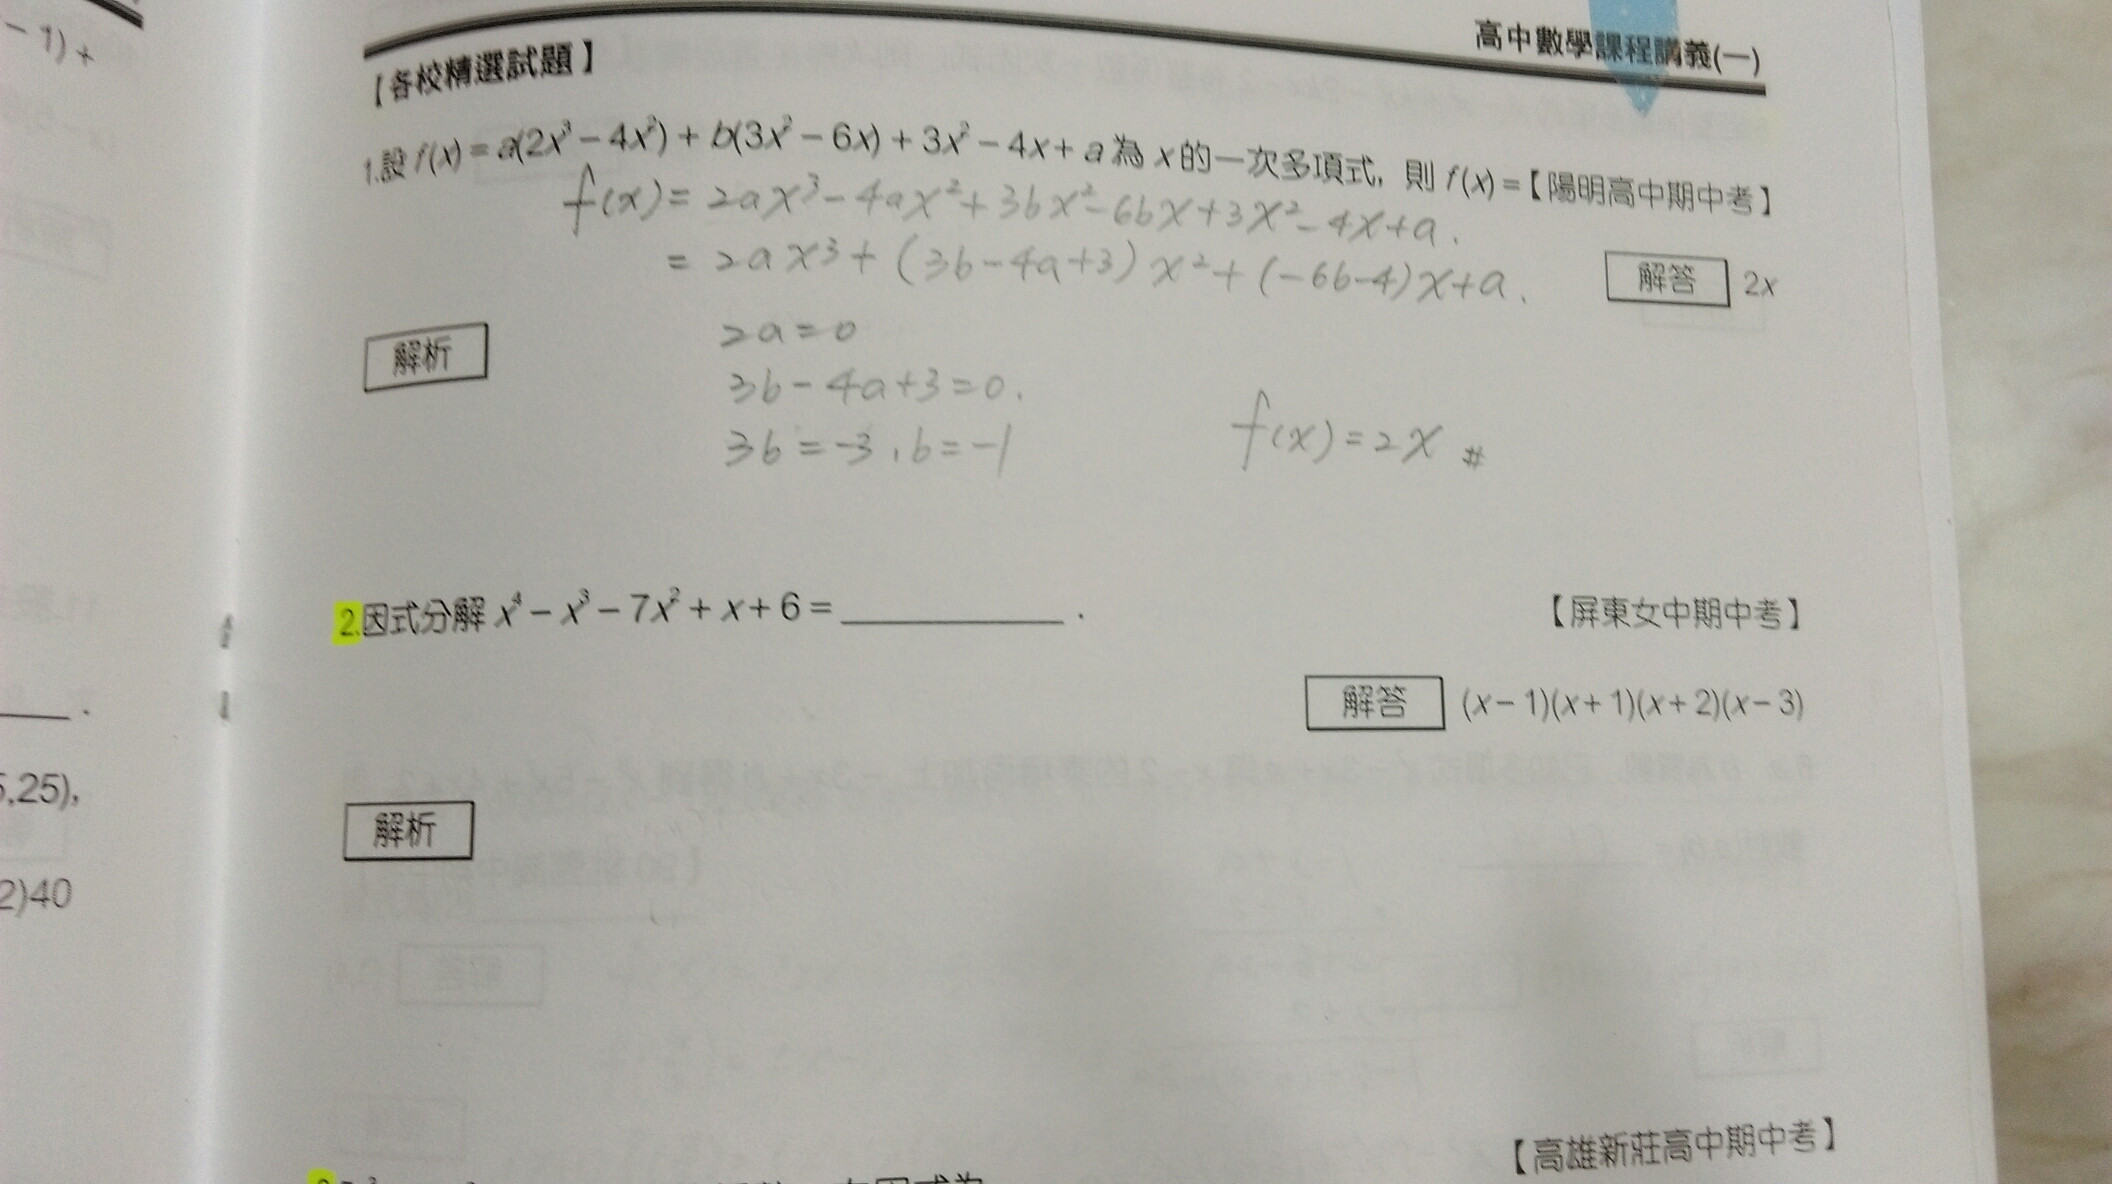 高中數學課程講義(一)
【各校精選試題】
1.設 f(x) = a(2x³ − 4x²) + b(3x² − 6x) + 3x² − 4x + a 為 x 的一次多項式，則 f(x) =【陽明高中期中考】
f(x) = 2ax³ − 4ax² + 3bx² − 6bx + 3x² − 4x + a.
= 2ax³ + (3b − 4a + 3)x² + (−6b − 4)x + a.
解答 2x
解析
2a = 0
3b − 4a + 3 = 0.
3b = −3, b = −1
f(x) = 2x #
2.因式分解 x⁴ − x³ − 7x² + x + 6 = ________ .
【屏東女中期中考】
解答 (x − 1)(x + 1)(x + 2)(x − 3)
解析
【高雄新莊高中期中考】
− 1) +
.
5,25),
2)40